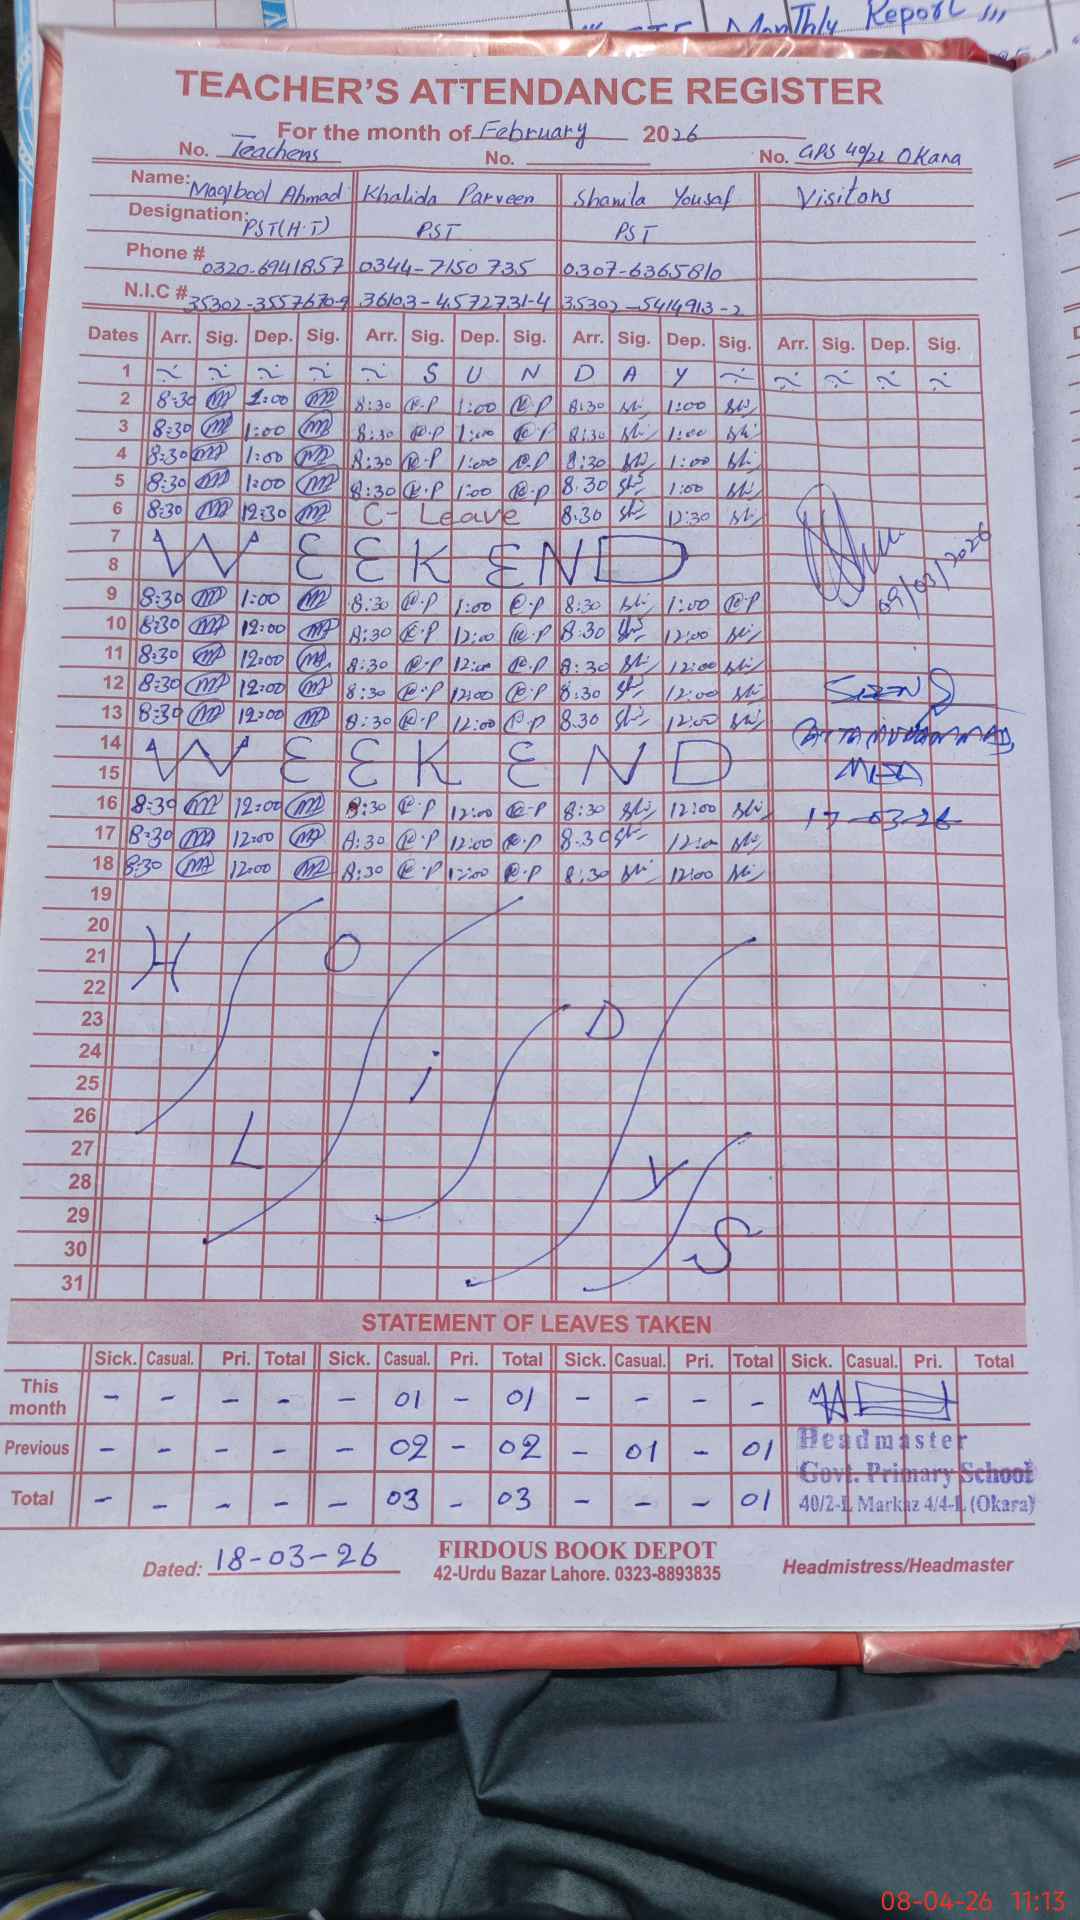 Monthly Report ,,,
TEACHER'S ATTENDANCE REGISTER
For the month of February 2026
No. Teachers No. No. GPS 40/2L Okara
Name: Maqbool Ahmad Khalida Parveen Shamla Yousaf Visitors
Designation: PST(H.T) PST PST
Phone # 0320-6941857 0344-7150735 0307-6365810
N.I.C # 35302-3557670-9 36103-4572731-4 35302-5414913-2
Dates Arr. Sig. Dep. Sig. Arr. Sig. Dep. Sig. Arr. Sig. Dep. Sig. Arr. Sig. Dep. Sig.
1 S U N D A Y
2 8:30 1:00 8:30 K.P 1:00 K.P 8:30 1:00
3 8:30 1:00 8:30 K.P 1:00 K.P 8:30 1:00
4 8:30 1:00 8:30 K.P 1:00 K.P 8:30 1:00
5 8:30 1:00 8:30 K.P 1:00 K.P 8:30 1:00
6 8:30 12:30 C- Leave 8:30 12:30
7
8 WEEKEND
9 8:30 1:00 8:30 K.P 1:00 K.P 8:30 1:00 K.P
09/03/2026
10 8:30 12:00 8:30 K.P 12:00 K.P 8:30 12:00
11 8:30 12:00 8:30 K.P 12:00 K.P 8:30 12:00
12 8:30 12:00 8:30 K.P 12:00 K.P 8:30 12:00
13 8:30 12:00 8:30 K.P 12:00 K.P 8:30 12:00
14
15 WEEKEND
16 8:30 12:00 8:30 K.P 12:00 K.P 8:30 12:00 17-03-26
17 8:30 12:00 8:30 K.P 12:00 K.P 8:30 12:00
18 8:30 12:00 8:30 K.P 12:00 K.P 8:30 12:00
19
20
21
22
23
24
25
26
27
28
29
30
31
HOLiDYS
STATEMENT OF LEAVES TAKEN
Sick. Casual. Pri. Total Sick. Casual. Pri. Total Sick. Casual. Pri. Total Sick. Casual. Pri. Total
This month - - - - - 01 - 01 - - - -
Previous - - - - - 02 - 02 - 01 - 01
Total - - - - - 03 - 03 - - - 01
Headmaster
Govt. Primary School
40/2-L Markaz 4/4-L (Okara)
Dated: 18-03-26
FIRDOUS BOOK DEPOT
42-Urdu Bazar Lahore. 0323-8893835
Headmistress/Headmaster
08-04-26 11:13